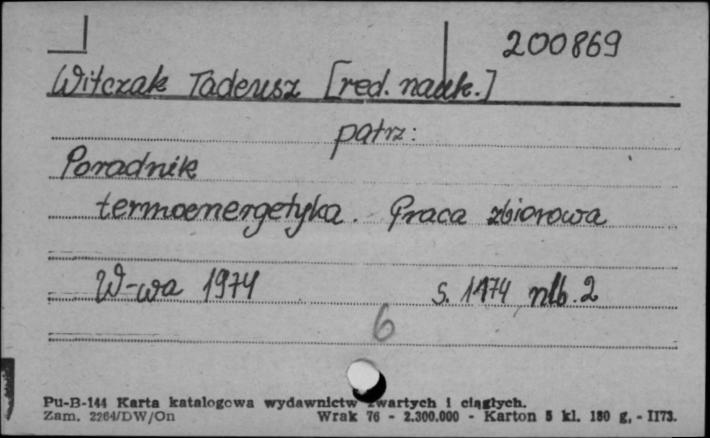 200869
Witczak Tadeusz [red. nauk.]
patrz:
Poradnik
termoenergetyka. Praca zbiorowa
W-wa 1974 s. 1474 nlb. 2
6
Pu-B-144 Karta katalogowa wydawnictw zwartych i ciągłych.
Zam. 2264/DW/On Wrak 76 - 2.300.000 - Karton 5 kl. 180 g. - II73.